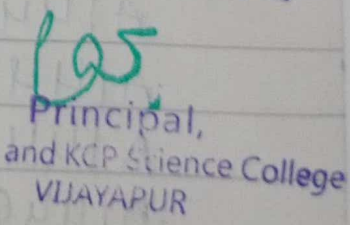 Principal,
and KCP Science College
VIJAYAPUR